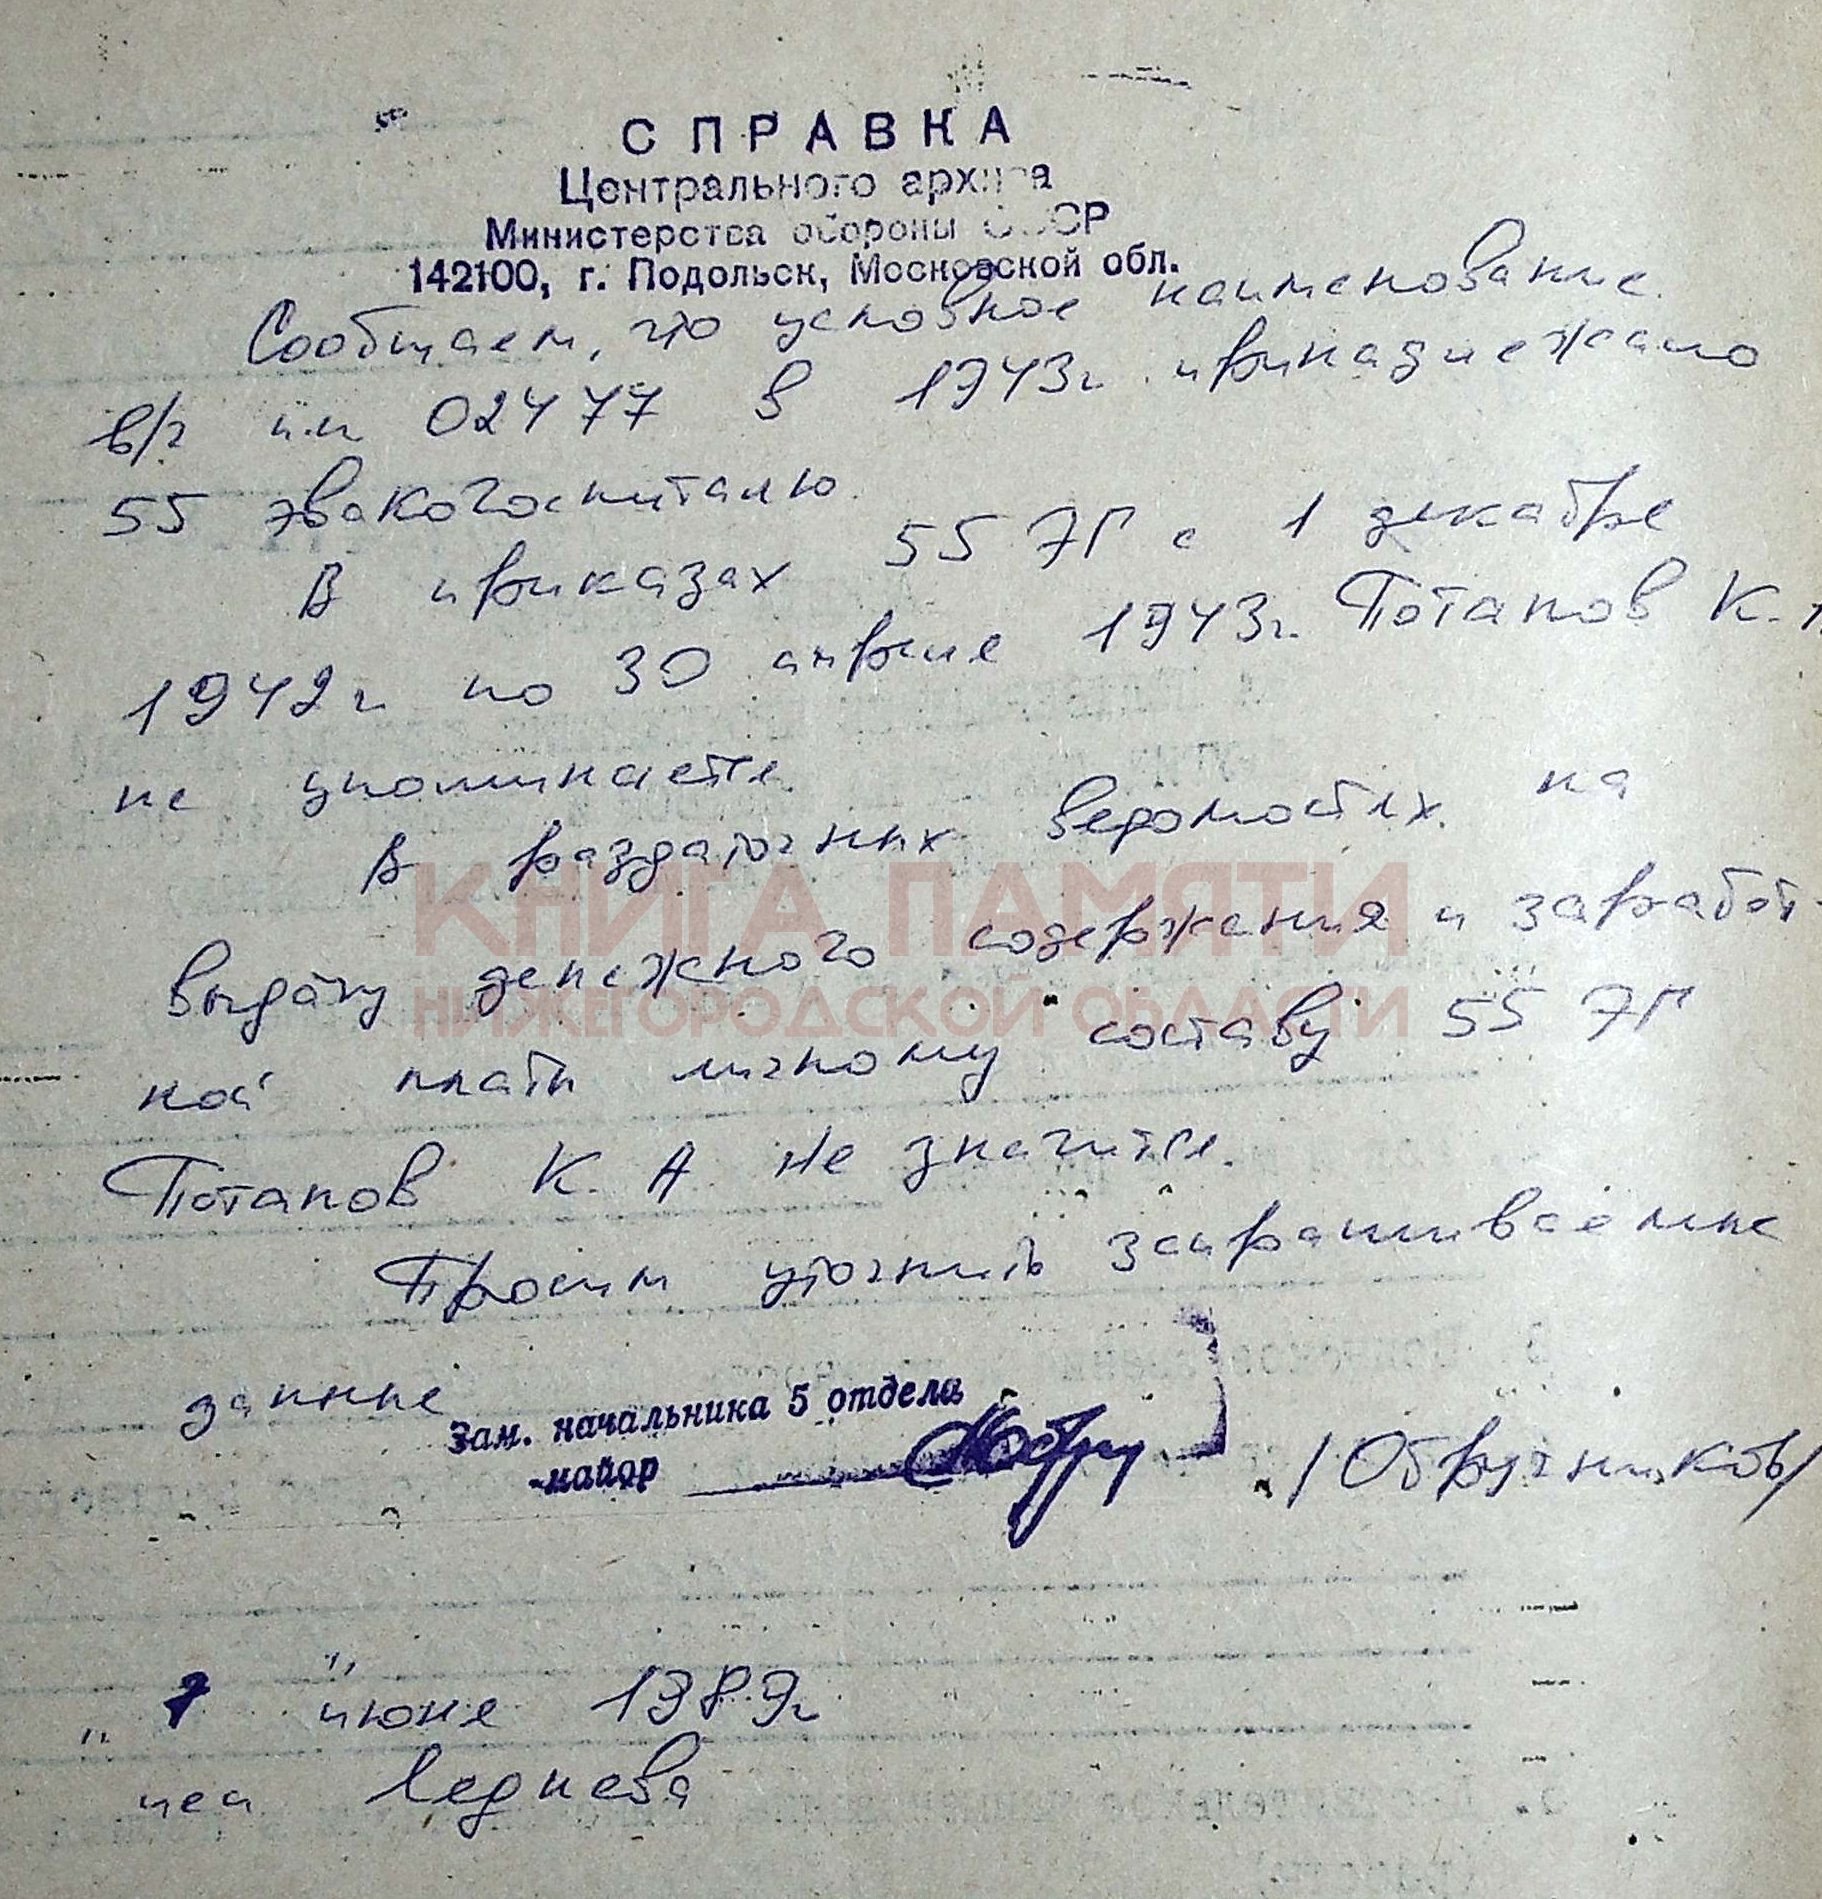 СПРАВКА
Центрального архива
Министерства обороны СССР
142100, г. Подольск, Московской обл.
Сообщаем, что условное наименование
в/ч п.п 02477 в 1943г. принадлежало
55 эвакогоспиталю.
В приказах 55 ЭГ с 1 декабря
1942г по 30 апреля 1943г. Потапов К.А
не упоминается.
В раздаточных ведомостях на
выдачу денежного содержания и заработ-
ной платы личному составу 55 ЭГ
Потапов К. А не значится.
Просим уточнить запрашиваемые
данные
Зам. начальника 5 отдела
майор
/Обручников/
" 7 " июня 1989г
исп Леднева
КНИГА ПАМЯТИ
НИЖЕГОРОДСКОЙ ОБЛАСТИ